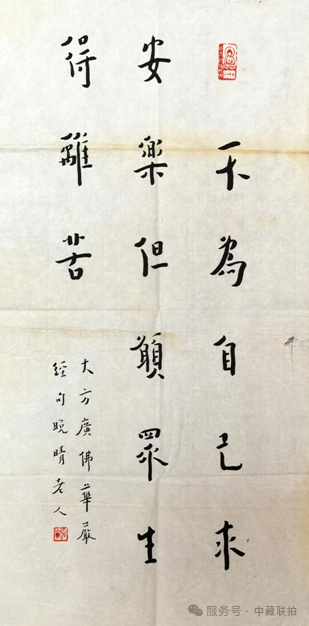 不为自己求
安樂但願眾生
得離苦
大方廣佛華嚴
經句晚晴老人
服务号 · 中藏联拍